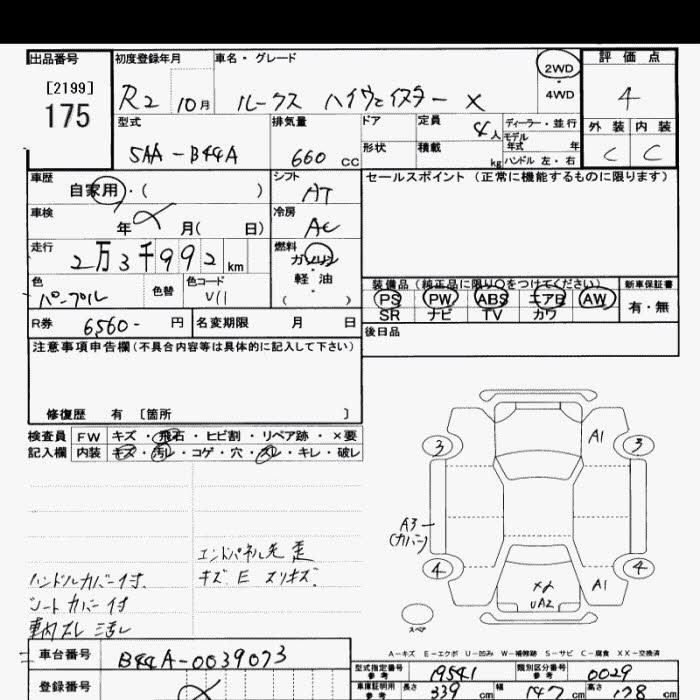 出品番号 初度登録年月 車名・グレード 評価点
[2199] 175
R2 10月 ルークス ハイウェイスター X 2WD 4WD 4
型式 排気量 ドア 定員 4人 ディーラー・並行 外装 内装
5AA-B44A 660cc 形状 積載 kg モデル年式 年 ハンドル 左・右 C C
車歴 自家用・( ) シフト AT セールスポイント (正常に機能するものに限ります)
車検 年 月( 日) 冷房 AC
走行 2万3千992km 燃料 ガソリン・軽油 ( )
色 パープル 色替 色コード V11
装備品(純正品に限り○をつけてください) 新車保証書
PS PW ABS エアB AW 有・無
SR ナビ TV カワ
R券 6,560- 円 名変期限 月 日 後日品
注意事項申告欄(不具合内容等は具体的に記入して下さい)
修復歴 有 〔箇所 〕
検査員 FW キズ・飛石・ヒビ割・リペア跡・×要
記入欄 内装 キズ・汚レ・コゲ・穴・スレ・キレ・破レ
エンドパネル先
キズ E スリキズ
ハンドルカバー付
シートカバー付
A1 3 3
A3 (カバー)
4 4
A1
UA2
スペア
A-キズ E-エクボ U-凹み W-補修跡 S-サビ C-腐食 XX-交換済
車台番号 B44A-0039073
型式指定番号 参考 19541 類別区分番号 参考 0029
登録番号
車庫証明用 参考 長さ 339cm 幅 147cm 高さ 178cm